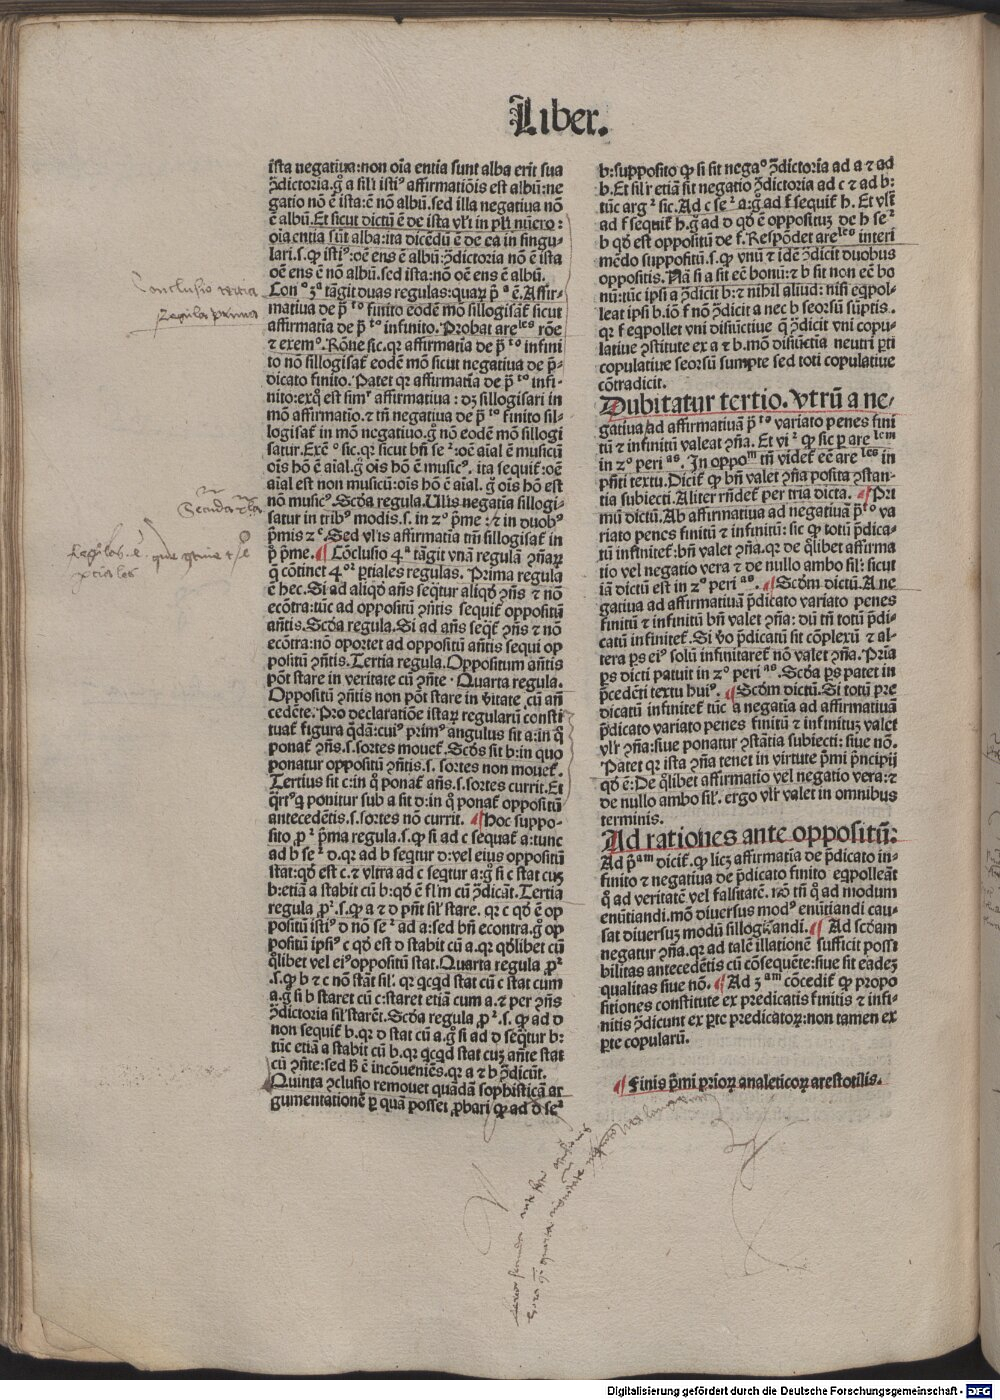 Liber.
ista negatiua:non oīa entia sunt alba erit sua
ꝯ̄dictoria.gͦ a sili istiꝰ affirmatiōis est albū:ne
gatio nō ē ista:ē nō albū.sed illa negatiua nō
ē albū.Et sicut dictū ē de ista vli in pli nūero:
oīa entia sūt alba:ita dicēdū ē de ea in singu-
lari.s.ꝙ istiꝰ:oē ens ē albū:ꝯ̄dictoria nō ē ista
oē ens ē nō albū.sed ista:nō oē ens ē albū.
Conͦ 3ᵃ tāgit duas regulas:quaꝝ p̄ᵃ ē.Affir-
matiua de p̄ᵗᵒ finito eodē mō sillogisat̄ sicut
affirmatīa de p̄ᵗᵒ infinito.Probat areˡᵉˢ rōe
⁊ exemͦ.Rōne sic.qꝛ affirmatīa de p̄ᵗᵒ infini
to nō sillogisat̄ eodē mō sicut negatiua de p̄-
dicato finito.Patet qꝛ affirmatīa de p̄ᵗᵒ infi-
nito:exq̊ est simʳ affirmatiua: dꝫ sillogisari in
mō affirmatīo.⁊ tn̄ negatiua de p̄ᵗᵒ finito sil-
logisat̄ in mō negatiuo.gͦ nō eodē mō sillogi
satur.Exēͦ sic.qꝛ sicut bn̄ seᶻ:oē aīal ē musicū
oīs hō ē aīal.gͦ oīs hō ē musicꝰ. ita sequit̄:oē
aīal est non musicū:oīs hō ē aīal. gͦ oīs hō est
nō musicꝰ.Scd̄a regula.Ulis negatīa sillogi-
satur in tribꝰ modis.s.in 2ᵒ p̄me :⁊ in duobꝰ
p̄mis 2ᵉ.Sed vlis affirmatīa tm̄ sillogisat̄ in
pͦ p̄me. ¶ Cōclusio 4ᵃ tāgit vnā regulā ꝯ̄naꝝ
q̄ cōtinet 4ᵒʳ ꝑtiales regulas. Prima regula
ē hec.Si ad aliqd̄ an̄s seq̄tur aliqd̄ ꝯ̄ns ⁊ nō
ecōtra:tūc ad oppositū ꝯ̄ntis sequit̄ oppositū
an̄tis.Scd̄a regula.Si ad an̄s seqt̄ ꝯ̄ns ⁊ nō
ecōtra:nō oportet ad oppositū an̄tis sequi op
positū ꝯ̄ntis.Tertia regula.Oppositum an̄tis
pōt stare in veritate cū ꝯ̄nte · Quarta regula.
Oppositū ꝯ̄ntis non pōt stare in v̄itate cū an̄
cedēte.Pro declaratiōe istaꝝ regularū consti
tuat̄ figura qd̄ā:cuiꝰ primꝰ angulus sit a:in q̊
ponat̄ ꝯ̄ns.s.sortes mouet̄.Scd̄s sit b:in quo
ponatur oppositū ꝯ̄ntis.s. sortes non mouet̄.
Tertius sit c:in q̊ ponat̄ an̄s.s.sortes currit.Et
q̄rtꝰ q̄ ponitur sub a sit d:in q̊ ponat̄ oppositū
antecedētis.s.sortes nō currit. ¶Hoc suppo-
sito ꝓᶻ p̄ma regula.s.ꝙ si ad c sequat̄ a:tunc
ad b seᶻ d.qꝛ ad b seq̄tur d:vel eius oppositū
stat:qd̄ est c.⁊ vltra ad c seq̄tur a:gͦ si c stat cuꝫ
b:etiā a stabit cū b:qd̄ ē flm cū ꝯ̄dicāt.Tertia
regula ꝓᶻ.s.ꝙ a ⁊ d pn̄t sil stare. qꝛ c qd̄ ē op
positū istiꝰ d nō seᶻ ad a:sed bn̄ econtra.gͦ op
positū ipsiꝰ c qd̄ est d stabit cū a.qꝛ qd̄libet cū
q̊libet vel eiꝰ oppositū stat.Quarta regula ꝓᶻ
.s.ꝙ b ⁊ c nō stāt sil. qꝛ qcqd̄ stat cū c stat cum
a.gͦ si b staret cū c:staret etiā cum a.⁊ per ꝯ̄ns
ꝯ̄dictoria sil starēt.Scd̄a regula ꝓᶻ.s. ꝙ ad d
non sequit̄ b.qꝛ d stat cū a.gͦ si ad d seq̄tur b:
tūc etiā a stabit cū b.qꝛ qcqd̄ stat cuꝫ an̄te stat
cū ꝯ̄nte:sed ꝭ ē incōueniēs.qꝛ a ⁊ b ꝯ̄dicūt.
Quinta ꝯ̄clusio remouet quādā sophisticā ar
gumentationē ꝑ quā posset ꝓbari ꝙ ad d seᶻ
b:supposito ꝙ si sit negaͦ ꝯ̄dictoria ad a ⁊ ad
b.Et silr etiā sit negatio ꝯ̄dictoria ad c ⁊ ad b:
tūc argᶻ sic.Ad c seᶻ a:gͦ ad f sequit̄ h.Et vlt̄
ad f sequit̄ h.gͦ ad d qd̄ ē opposituꝫ de h seᶻ
b qd̄ est oppositū de f.Respōdet areˡᵉˢ interi
mēdo suppositū.s.ꝙ vnū ⁊ idē ꝯ̄dicit duobus
oppositis. Nā si a sit eē bonū:⁊ b sit non eē bo
nū:tūc ipsi a ꝯ̄dicit b:⁊ nihil aliud: nisi eq̄pol-
leat ipsi b.iō f nō ꝯ̄dicit a nec b seorsū sūptis.
qꝛ f eq̄pollet vni disiūctiue q̄ ꝯ̄dicit vni copu-
latiue ꝯ̄stitute ex a ⁊ b.mō disiūctīa neutri ꝑti
copulatiue seorsū sumpte sed toti copulatiue
cōtradicit.
Dubitatur tertio. Vtrū a ne-
gatiua ad affirmatiuā p̄ᵗᵒ variato penes fini
tū ⁊ infinitū valeat ꝯ̄na. Et viᶻ ꝙ sic ꝑ areˡᵉᵐ
in 2ᵒ periᵃˢ. In oppoᵐ tn̄ videt̄ eē areˡᵉˢ in
pn̄ti textu.Dicit̄ ꝙ bn̄ valet ꝯ̄na posita ꝯ̄stan-
tia subiecti.Aliter rn̄det̄ per tria dicta. ¶Pri
mū dictū.Ab affirmatiua ad negatiuā p̄ᵗᵒ va
riato penes finitū ⁊ infinitū: sic ꝙ totū p̄dica-
tū infinitet̄:bn̄ valet ꝯ̄na.qꝛ de q̊libet affirma
tio vel negatio vera ⁊ de nullo ambo sil: sicut
iā dictū est in 2ᵒ periᵃˢ. ¶Scd̄m dictū.A ne
gatiua ad affirmatiuā p̄dicato variato penes
finitū ⁊ infinitū bn̄ valet ꝯ̄na: dū tn̄ totū p̄di-
catū infinitet̄.Si v̊o p̄dicatū sit cōplexū ⁊ al-
tera ꝑs eiꝰ solū infinitaret̄ nō valet ꝯ̄na.Pria
ꝑs dicti patuit in 2ᵒ periᵃˢ. Scd̄a ꝑs patet in
p̄cedēti textu huiꝰ. ¶Scd̄m dictū.Si totū pre
dicatū infinitet̄ tūc a negatīa ad affirmatiuā
p̄dicato variato penes finitū ⁊ infinituꝫ valet
vlr ꝯ̄na:siue ponatur ꝯ̄stātia subiecti: siue nō.
Patet qꝛ ista ꝯ̄na tenet in virtute p̄mi p̄ncipij
qd̄ ē:De q̊libet affirmatio vel negatio vera:⁊
de nullo ambo sil. ergo vlr valet in omnibus
terminis.
Ad rationes ante oppositū:
Ad p̄ᵃᵐ dicit̄.ꝙ licꝫ affirmatīa de p̄dicato in-
finito ⁊ negatiua de p̄dicato finito eq̄polleāt
q̊ ad veritatē vel falsitatē. nō tn̄ q̊ ad modum
enūtiandi.mō diuersus modꝰ enūtiandi cau-
sat diuersuꝫ modū sillogizandi. ¶ Ad scd̄am
negatur ꝯ̄na.qꝛ ad talē illationē sufficit possi
bilitas antecedētis cū cōsequēte:siue sit eadeꝫ
qualitas siue nō. ¶Ad 3ᵃᵐ cōcedit̄ ꝙ propo
sitiones constitute ex predicatis finitis ⁊ infi-
nitis ꝯ̄dicunt ex ꝑte predicatoꝝ:non tamen ex
ꝑte copularū.
¶Finis p̄mi prioꝝ analeticoꝝ arestotilis.
Conclusio tertia
Regula prima
Digitalisierung gefördert durch die Deutsche Forschungsgemeinschaft - DFG